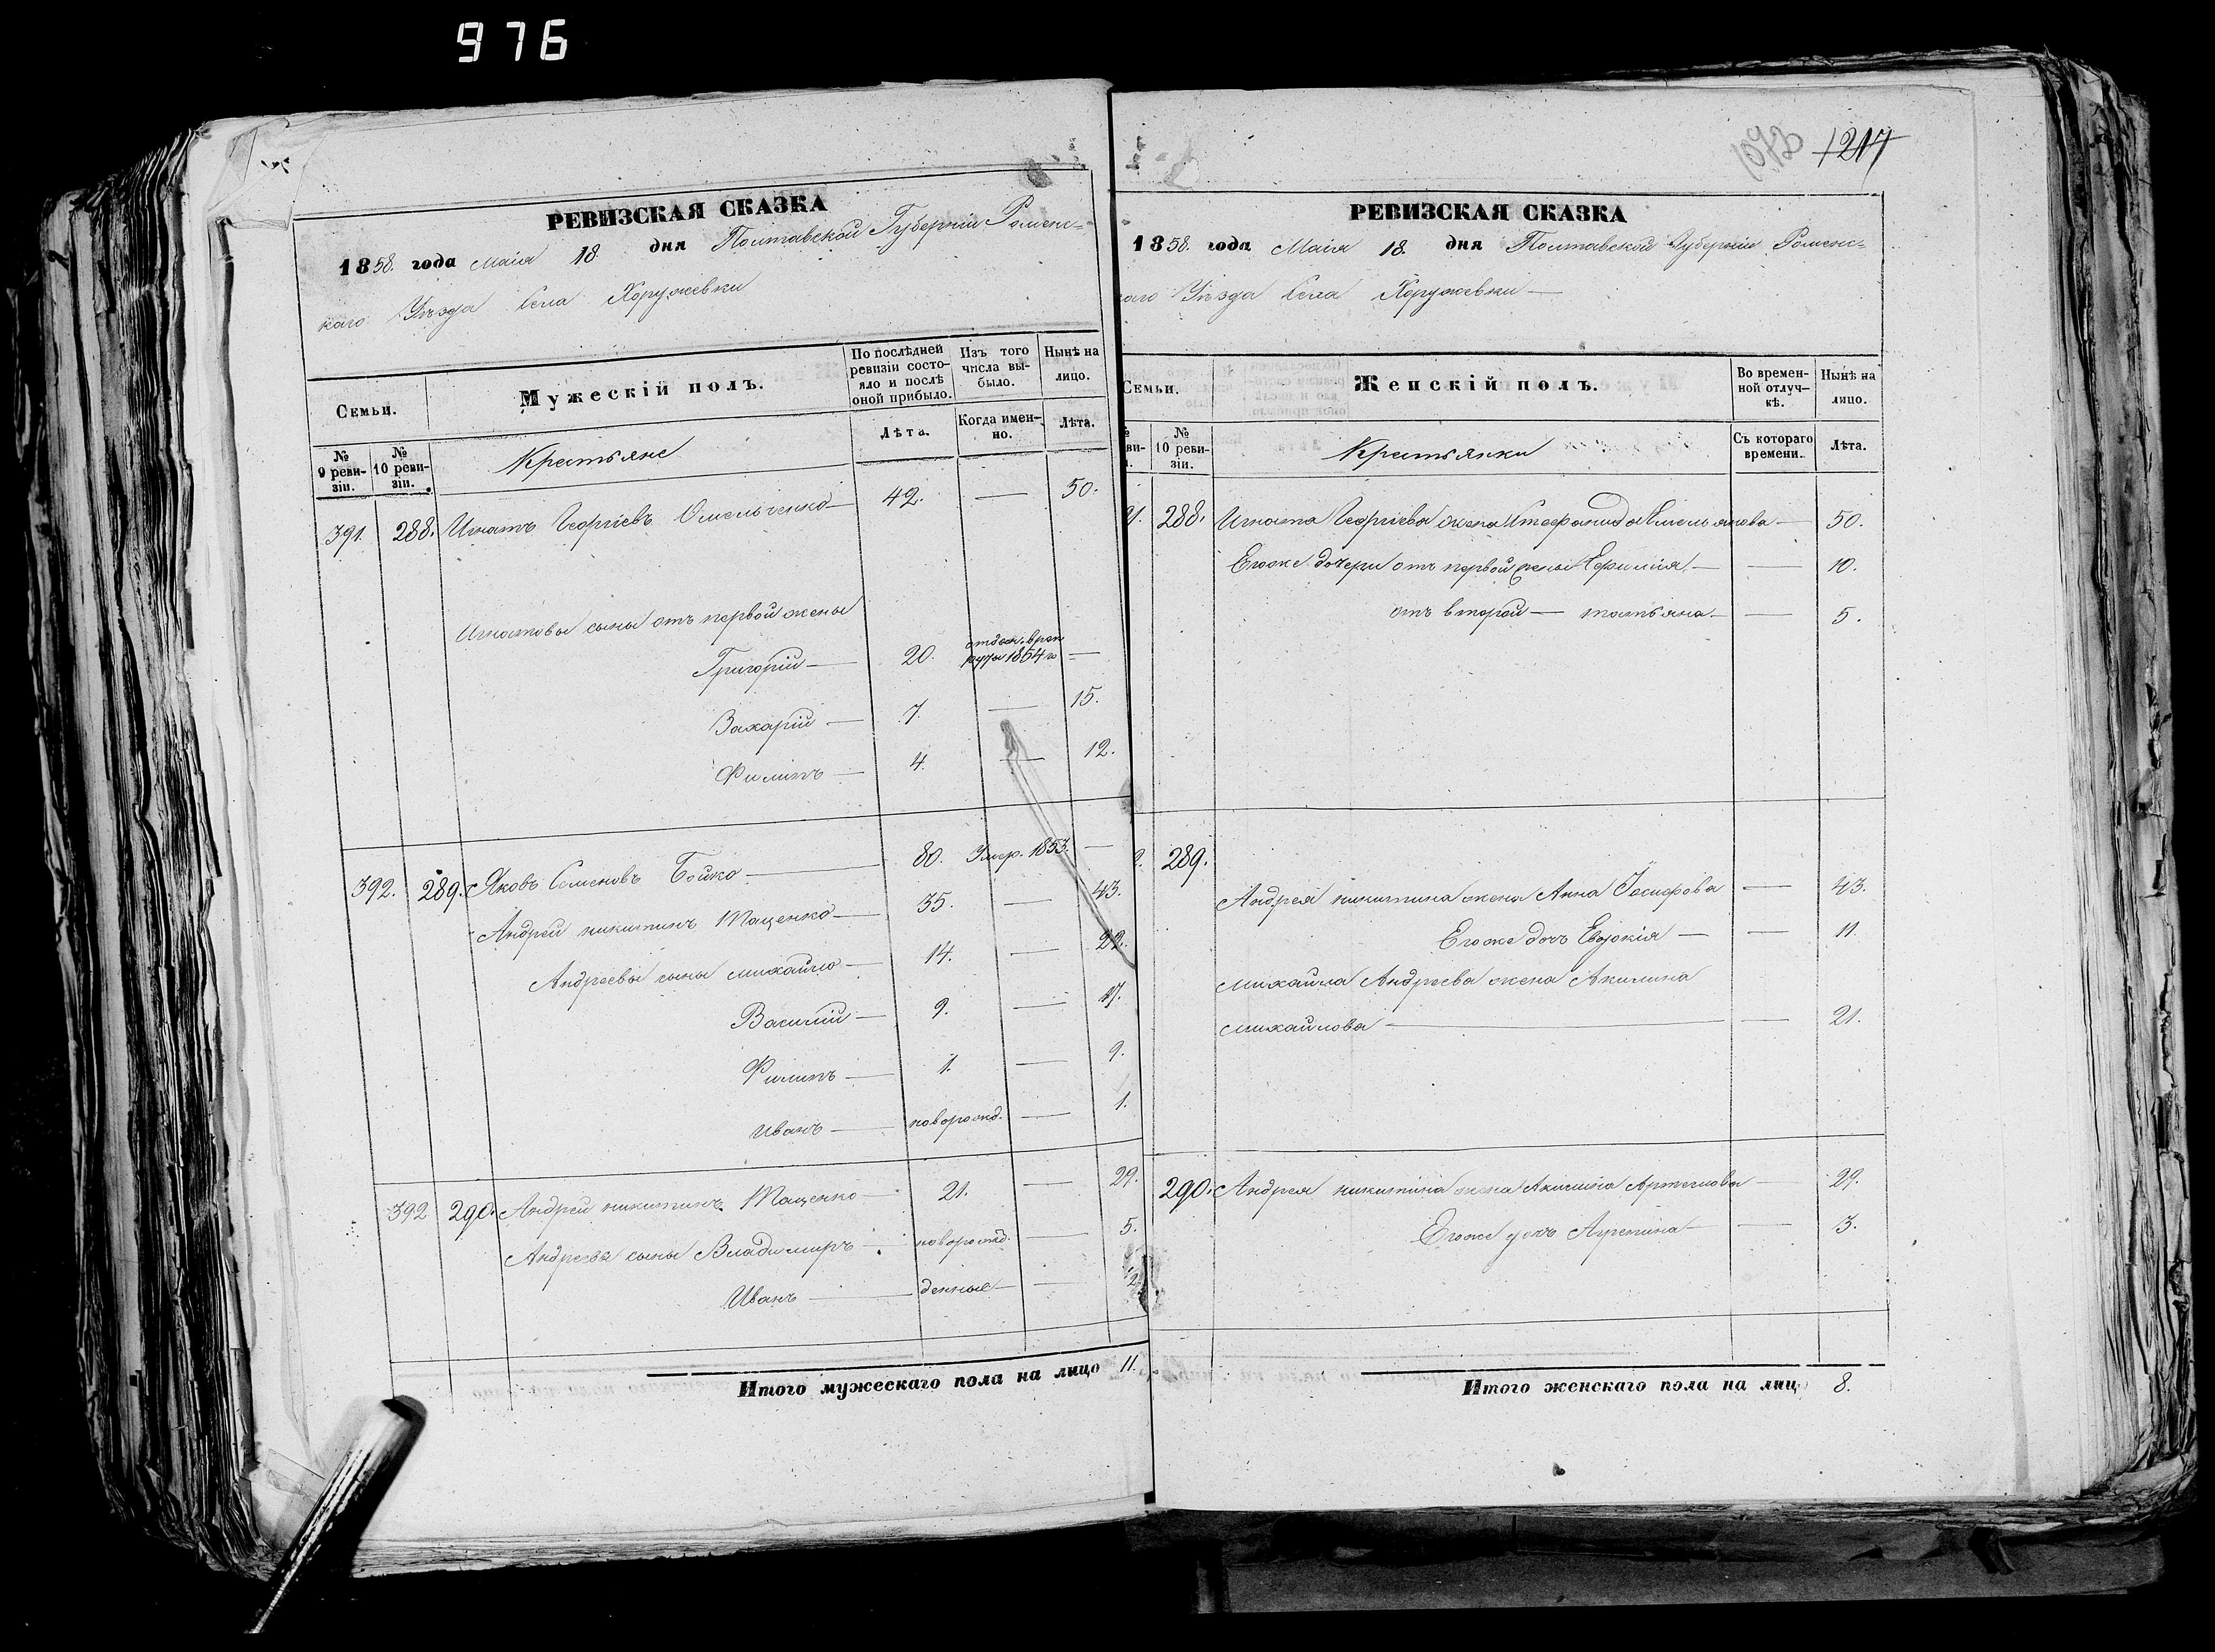 976
РЕВИЗСКАЯ СКАЗКА
1858. года Маія 18. дня Полтавской Губерніи Роменс=
каго Уѣзда Села Хоружевки
Семьи.
Мужескій полъ.
По послѣдней ревизіи состояло и послѣ оной прибыло.
Изъ того числа выбыло.
Нынѣ на лицо.
№ 9 ревизіи.
№ 10 ревизіи.
Крестьяне
Лѣта.
Когда именно.
Лѣта.
391. 288. Игнатъ Георгіевъ Омельченко 42. — 50.
Игнатовы сыны отъ первой жены
Григорій — 20. отдан. в рек руты 1854 го —
Захарій — 7. — 15.
Филипъ — 4. — 12.
392. 289. Яковъ Семеновъ Бойко — 80. Умер. 1853. —
Андрей никитинъ Тащенко — 35. — 43.
Андреевы сыны михайло — 14. — 22.
Василій — 9. — 17.
Филипъ — 1. — 9.
Иванъ — новорожд. — 1.
392 290. Андрей никитинъ Тащенко — 21. — 29.
Андреевы сыны Владимиръ — новорожд. — 5.
Иванъ — денные — 2
Итого мужескаго пола на лицо 11.
1073 1217
РЕВИЗСКАЯ СКАЗКА
1858. года Маія 18. дня Полтавской Губерніи Роменс=
каго Уѣзда Села Хоружевки —
Семьи.
Женскій полъ.
Во временной отлучкѣ.
Нынѣ на лицо.
№ 10 ревизіи.
Крестьянки
Съ котораго времени.
Лѣта.
288. Игната Георгіева жена Стефанида Емельянова — 50.
Егоже дочери отъ первой жены Ефимія — — 10.
отъ второй — татьяна — — 5.
289.
Андрея никитина жена Анна Іосифова — 43.
Егоже дочь Евдокія — — 11.
михайла Андреева жена Акилина
михайлова — — 21.
290. Андрея никитина жена Акилина Артемова — 29.
Егоже дочь Агрепина — — 3.
Итого женскаго пола на лицо 8.